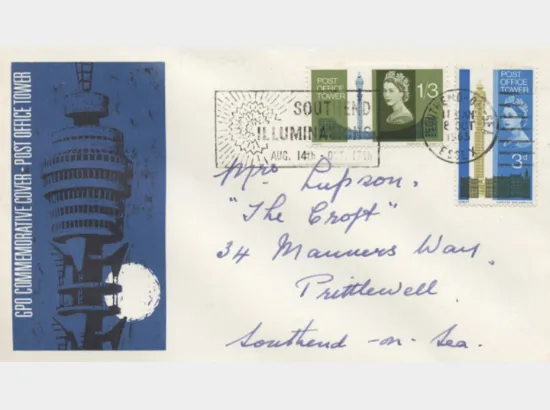 GPO COMMEMORATIVE COVER - POST OFFICE TOWER
POST
OFFICE
TOWER
1/3
POST
OFFICE
TOWER
3d
SOUTHEND
ILLUMINATIONS
AUG. 14th - OCT. 17th
SOUTHEND-ON-SEA
8 OCT
1965
ESSEX
Mrs Lupson.
"The Croft"
34 Manners Way,
Prittlewell.
Southend-on-Sea.